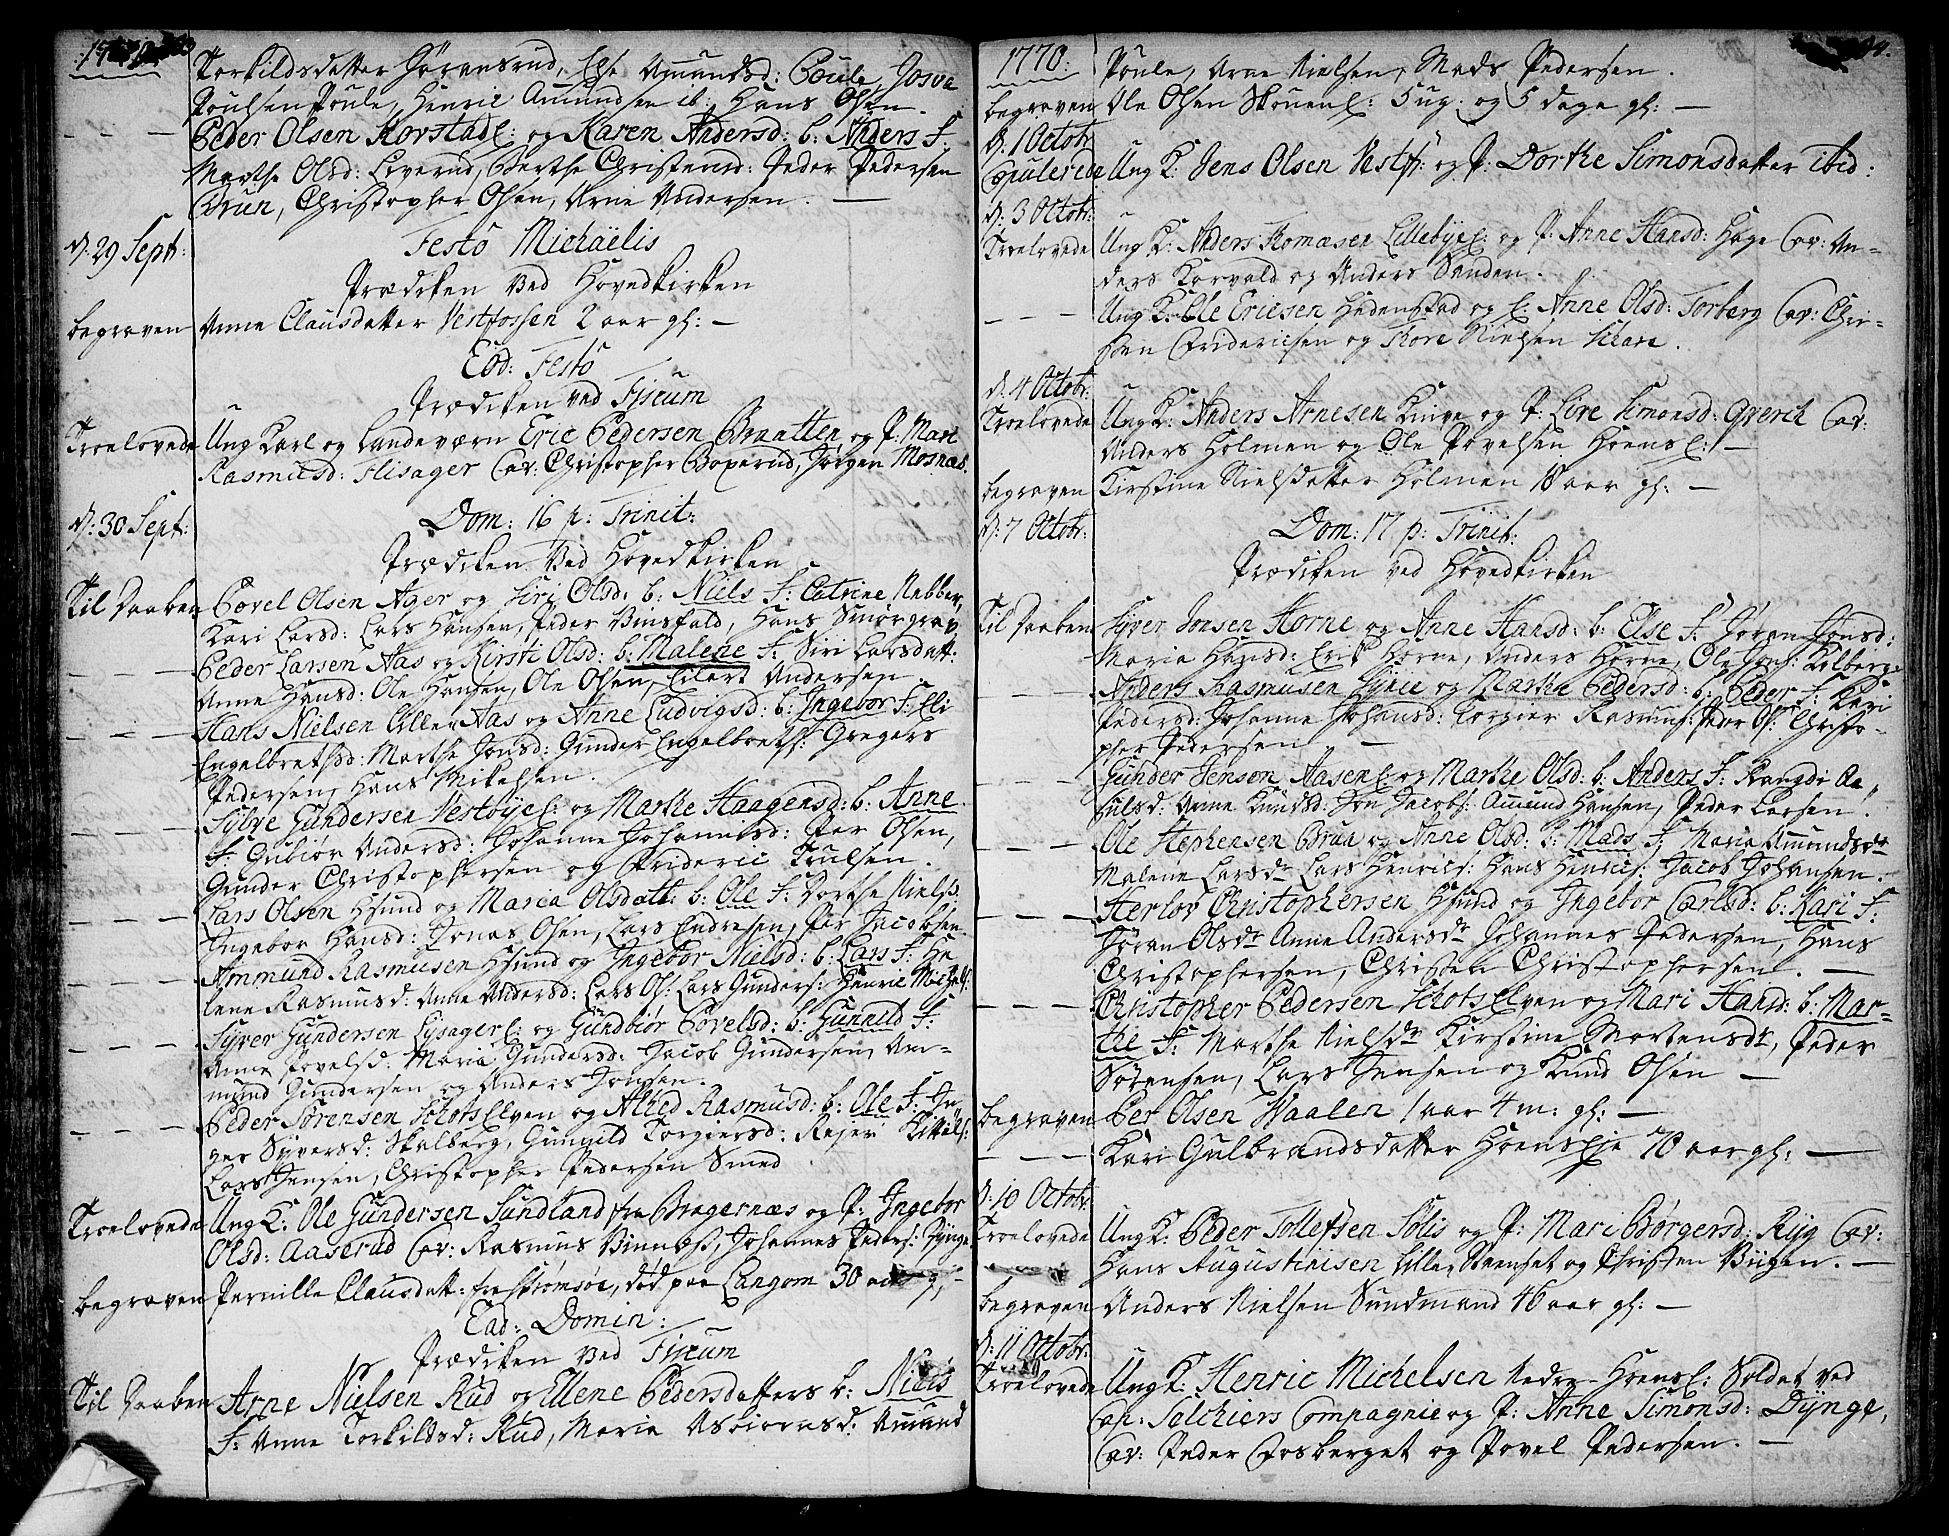 Torkildsdatter Gøransrud, Else Amundsd: Poule, Josva
Poulsen Poule, Henric Amundsen ib: Hans Olsen
Peder Olsen Korstad E: og Karen Andersd: b: Anders F:
Marthe Olsd: Leverud, Berthe Christensd: Peder Pedersen
Brun, Christopher Olsen, Arne Andersen. —
d: 29 Sept: Festo Michaëlis
Prædiken ved Hovedkirken
begraven Anne Clausdatter Vestfossen 2 aar gl: —
Eod: Festo
Prædiken ved Fiscum
Troelovede Ung Karl og Landeværn Eric Pedersen Braatten og P: Mari
Rasmusd: Flisager Cav: Christopher Boperud, Jørgen Mosnæs.
d: 30 Sept: Dom: 16 p: Trinit:
Prædiken ved Hovedkirken
Til Daaben Povel Olsen Ager og Siri Olsd: b: Niels F: Catrine Nebber,
Kari Larsd: Lars Hansen, Peder Vinsfald, Hans Smørgrav
Peder Larsen Aas og Kirsti Olsd: b: Malene F: Siri Larsdatt:
Anne Hansd: Ole Hansen, Ole Olsen, Eilert Andersen.
Hans Nielsen Aas og Anne Ludvigsd: b: Ingebor F: Eli
Engelbretsd: Marthe Jonsd: Gunder Engelbrets: Gregers
Pedersen, Hans Mikelsen.
Sylve Gundersen Vestbye E: og Marthe Haagensd: b: Anne
F: Gubiør Andersd: Johanne Johannisd: Per Olsen,
Gunder Christophersen og Frideric Trulsen.
Lars Olsen Hsund og Maria Olsdatt: b: Ole F: Dorthe Nielsd:
Ingebor Hansd: Jonas Olsen, Lars Endresen, Per Jacobsen
Ammund Rasmusen Hsund og Ingebor Nielsd: b: Lars F: He
lene Rasmusd: Anne Andersd: Lars Ols: Lars Gunders: Henric Michels:
Syver Gundersen Lysager E: og Gundbiør Povelsd: b: Gunnild F:
Anne Povelsd: Maria Gundersd: Jacob Gundersen, Am=
mund Gundersen og Anders Jonsen.
Peder Sørensen Schots Elven og Alhed Rasmusd: b: Ole F: In
ger Syversd: Skalberg, Gunnild Torgiersd: Kittils:
Lars Jensen, Christopher Pedersen Smed
Troelovede Ung K: Ole Gundersen Sundland fra Bragernæs og P: Ingebor
Olsd: Aaserud Cav: Rasmus Johannes Peders: Dynge
begraven Pernille Clausdatt: fra Strømsøe, død paa Langom 30 aar gl: —
Ead: Domin:
Prædiken ved Fiscum
Til Daaben Arne Nielsen Rud og Ellene Pedersdatters b: Niels
F: Anne Torkildsd: Rud, Maria Asbiørnsd: Amund
1770: Poule, Arne Nielsen, Mads Pedersen.
begraven Ole Olsen Skouen E: 5 ug: og 5 dage gl: —
d: 1 Octobr:
Copulerede Ung K: Jens Olsen Vestf: og P: Dorthe Simonsdatter ibid:
d: 3 Octobr:
Troelovede Ung K: Anders Thomæsen Lillebye E: og P: Anne Hansd: Hage Cav: An=
ders Korvald og Anders Sanden.
Ung K: Ole Ericsen Hedenstad og E: Anne Olsd: Torberg Cav: Chri=
sten Fridericsen og Thore Nielsen Skare.
d: 4 Octobr:
Troelovede Ung K: Anders Arnesen Knive og P: Live Simonsd: Qverck Cav:
Anders Holmen og Ole Povelsen Hoens E: —
begraven Kirstine Nielsdatter Holmen 18 aar gl: —
d: 7 Octobr: Dom: 17 p: Trinit:
Prædiken ved Hovedkirken
Til Daaben Syver Jonsen Horne og Anne Hansd: b: Else F: Jøran Jonsd:
Maria Hansd: Erik Horne, Anders Horne, Ole Jons: Kolberg.
Anders Rasmusen og Marthe Pedersd: b: Peder F: Kari
Pedersd: Johanne Johansd: Torgier Rasmus: Peder Ols: Christo=
pher Pedersen —
Gunder Jensen Aasen E: og Marthe Olsd: b: Anders F: Rangdi
Anne Knudsd: Jon Jacobs: Amund Hansen, Peder Larsen.
Ole Stephensen Brun og Anne Olsd: b: Mads F: Maria Amundsdr
Malene Larsdr Lars Henrics: Hans Henrics: Jacob Johansen.
Herlov Christophersen Hsund og Ingebor Carlsd: b: Kari F:
Jøran Olsdr Anne Andersdr Johannes Pedersen, Hans
Christophersen, Christen Christophersen. —
Christopher Pedersen Schots Elven og Mari Hansd: b: Mar=
the F: Marthe Nielsdr Kirstine Mortensdr, Peder
Sørensen, Lars Jensen og Knud Olsen —
begraven Per Olsen Waalen 1 aar 4 m: gl: —
Kari Gulbrandsdatter Hoens Eje 70 aar gl: —
d: 10 Octobr:
Troelovede Ung K: Peder Tollefsen Solis og P: Mari Børgersd: Ryg Cav:
Hans Augustinisen Lille og Christen Viigen. —
begraven Anders Nielsen Sundmand 46 aar gl: —
d: 11 Octobr:
Troelovede Ung K: Henric Michelsen Hoens E: Soldat ved
Cap: Selchiers Compagnie og P: Anne Simonsd: Dynge,
Cav: Peder Fosberget og Povel Pedersen. —